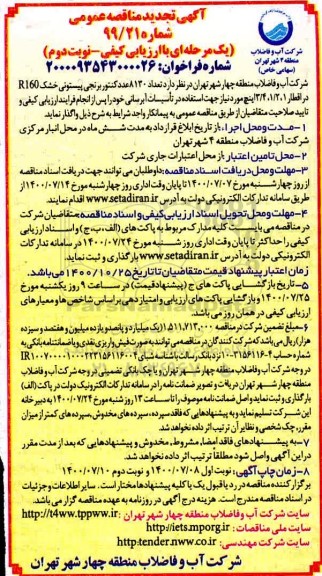 آگهی تجدید مناقصه عمومی
شماره ۹۹/۲۱
(یک مرحله‌ای با ارزیابی کیفی – نوبت دوم)
شماره فراخوان: ۲۰۰۰۰۹۳۵۴۳۰۰۰۰۲۶
شرکت آب و فاضلاب
منطقه ۴ شهر تهران
(سهامی خاص)
شرکت آب و فاضلاب منطقه چهار شهر تهران در نظر دارد تعداد ۸۱۳۰ عدد کنتور برنجی پیستونی خشک R160
در اقطار ۳/۴،۱/۲،۱ اینچ مورد نیاز جهت استفاده در تأسیسات آبرسانی خود را پس از انجام فرایند ارزیابی کیفی و
تایید صلاحیت متقاضیان از طریق مناقصه عمومی به پیمانکار واجد شرایط به شرح ذیل واگذار نماید.
۱- مدت و محل اجرا: از تاریخ ابلاغ قرارداد به مدت شش ماه در محل انبار مرکزی
شرکت آب و فاضلاب منطقه ۴ شهر تهران
۲- محل تامین اعتبار: از محل اعتبارات جاری شرکت
۳- مهلت و محل دریافت اسناد مناقصه: داوطلبین می توانند جهت دریافت اسناد مناقصه
از روز چهارشنبه مورخ ۱۴۰۰/۰۷/۰۷ تا پایان وقت اداری روز چهارشنبه مورخ ۱۴۰۰/۰۷/۱۴ از
طریق سامانه تدارکات الکترونیکی دولت به آدرس www.setadiran.ir اقدام نمایند.
۴- مهلت و محل تحویل اسناد ارزیابی کیفی و اسناد مناقصه: متقاضیان شرکت
در مناقصه می بایست کلیه مدارک مربوط به پاکت های (الف، ب، ج) و اسناد ارزیابی
کیفی را حداکثر تا پایان وقت اداری روز شنبه مورخ ۱۴۰۰/۰۷/۲۴ در سامانه تدارکات
الکترونیکی دولت به آدرس www.setadiran.ir بارگذاری و ثبت نمایند.
زمان اعتبار پیشنهاد قیمت متقاضیان تا تاریخ ۱۴۰۰/۱۰/۲۵ می باشد.
۵- تاریخ بازگشایی پاکت های ج (پیشنهاد قیمت) در ساعت ۹ روز یکشنبه مورخ
۱۴۰۰/۰۷/۲۵ و بازگشایی پاکت های ارزیابی و امتیازدهی بر اساس شاخص ها و معیارهای
ارزیابی کیفی در همان روز می باشد.
۶- مبلغ تضمین شرکت در مناقصه ۱،۵۱۱،۷۱۳،۰۰۰ (یک میلیارد و پانصد و یازده میلیون و هفتصد و سیزده
هزار) ریال می باشد که شرکت کنندگان در مناقصه می توانند به صورت فیش واریز نقدی و یا ضمانتنامه بانکی به
در وجه شرکت آب و فاضلاب منطقه چهار شهر تهران و یا چک بانکی تضمین در وجه شرکت آب و فاضلاب
منطقه چهار شهر تهران دریافت و تصویر ضمانت نامه را در سامانه تدارکات الکترونیک دولت در پاکت (الف)
بارگذاری و ثبت نماید و اصل ضمانت نامه موصوف را تا ساعت ۱۳ روز شنبه مورخ ۱۴۰۰/۰۷/۲۴ به دبیرخانه
این شرکت تسلیم نماید و به پیشنهادهایی که فاقد سپرده، سپرده های مخدوش، سپرده های کمتر از میزان
مقرر، چک شخصی و نظایر آن ترتیب اثر داده نخواهد شد.
۷- به پیشنهادهای فاقد امضا، مشروط، مخدوش و پیشنهادهایی که بعد از مدت مقرر
در این آگهی واصل شود مطلقاً ترتیب اثر داده نخواهد شد.
۸- زمان چاپ آگهی: نوبت اول ۱۴۰۰/۰۷/۰۸ و نوبت دوم ۱۴۰۰/۰۷/۱۰
برگزار کننده مناقصه در رد یا قبول یک یا کلیه پیشنهادها مختار است. سایر اطلاعات و جزئیات
در اسناد مناقصه مندرج است. هزینه درج آگهی در روزنامه به عهده مناقصه گزار می باشد.
سایت شرکت آب و فاضلاب منطقه چهار شهر تهران: http://t4ww.tppww.ir
سایت ملی مناقصات: http://iets.mporg.ir
سایت شرکت مهندسی: http:tender.nww.co.ir
شرکت آب و فاضلاب منطقه چهار شهر تهران